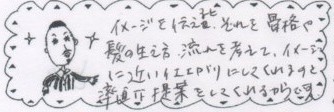 イメージを伝え、それを骨格や
髪の生え方 流れを考えて、イメージ
に近いイエエパリにしてくれるのと
準備や提案をしてくれるからです